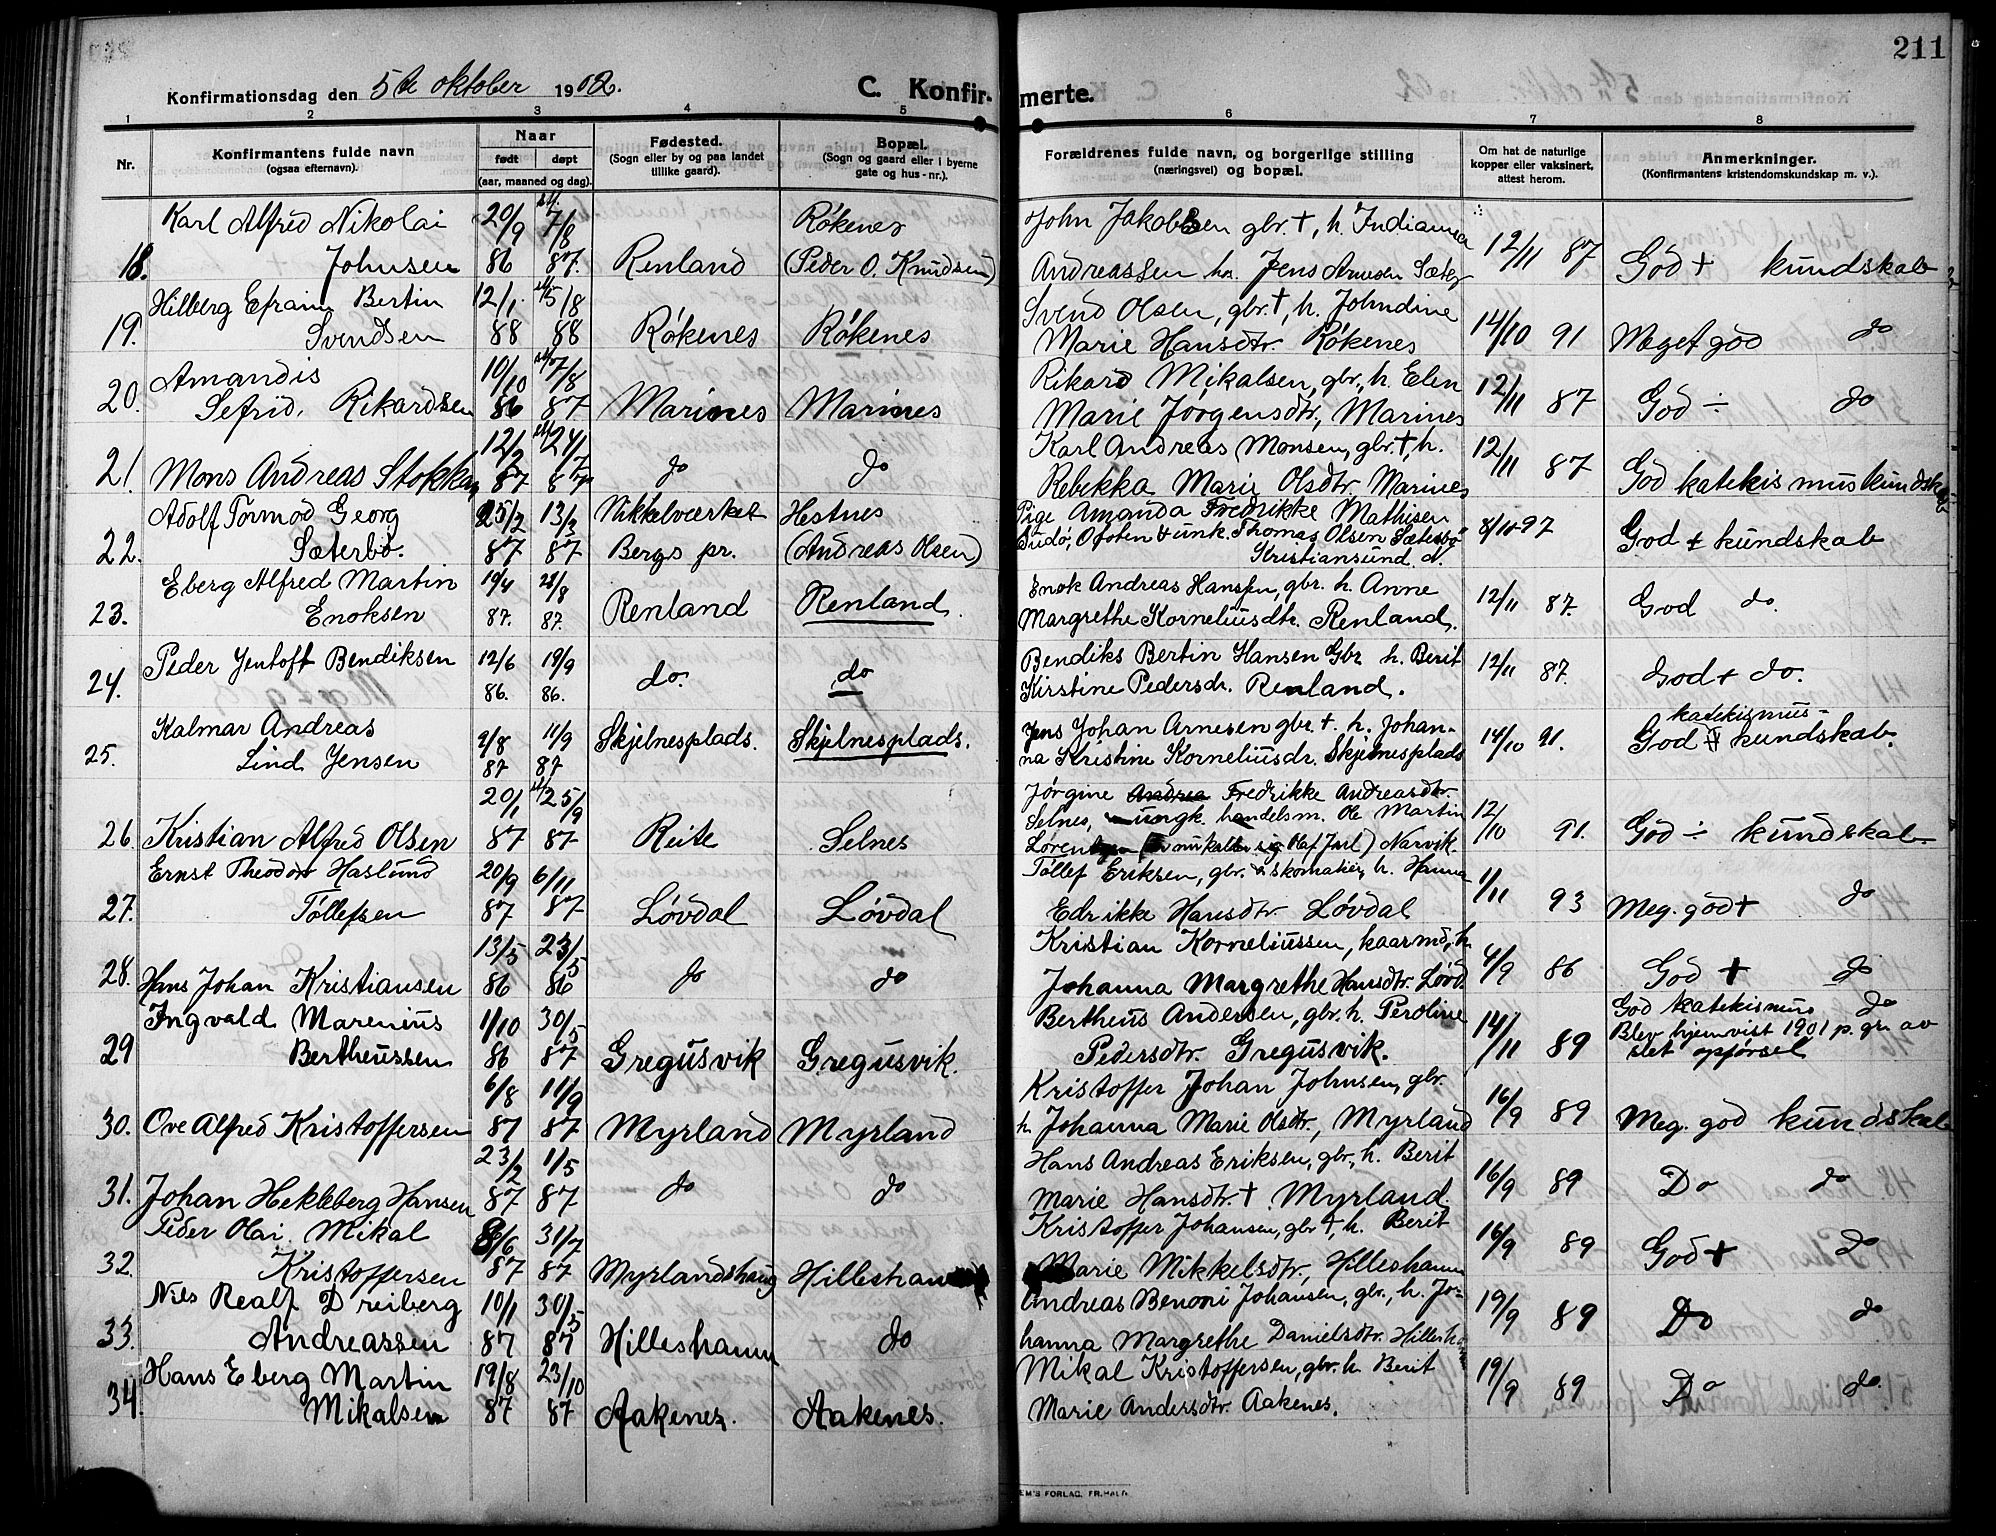 211
Konfirmationsdag den 5te oktober 1902.
C. Konfirmerte.
1 2 3 4 5 6 7 8
Nr.
Konfirmantens fulde navn
(ogsaa efternavn).
Naar
født døpt
(aar, maaned og dag).
Fødested.
(Sogn eller by og paa landet
tillike gaard).
Bopæl.
(Sogn og gaard eller i byerne
gate og hus-nr.).
Forældrenes fulde navn, og borgerlige stilling
(næringsvei) og bopæl.
Om hat de naturlige
kopper eller vaksinert,
attest herom.
Anmerkninger.
(Konfirmantens kristendomskundskap m. v.).
Karl Alfred Nikolai 20/9 7/8 Røkenes John Jakobsen gbr. +, h. Indianna
18. Johnsen 86 87. Renland (Peder O. Knudsen) Andreassen Jens Arnesen Sæter 12/11 87 God + kundskab
Hilberg Efraim Bertin 12/1. 5/8 Svend Olsen, gbr. +, h. Johndine
19. Svendsen 88 88 Røkenes Røkenes Marie Hansdtr. Røkenes 14/10 91 Meget god do
Amandis 10/10 7/8 Rikard Mikalsen, gbr., h. Elen
20. Sefrid, Rikardsen 86 87 Marines Marines Marie Jørgensdtr, Marines 12/11 87 God ÷ do
12/2 24/7 Karl Andreas Monsen, gbr. +, h.
21. Mons Andreas 87 87 do do Rebekka Marie Olsdtr. Marines 12/11 87 God katekismuskundskab
Adolf Tormod Georg 25/2 13/2 Nikkelværket Hestnes Pige Amanda Fredrikke Mathisen
22. Sæterbø. 87 87 Bergs pr. (Andreas Olsen) Sudø, Ofoten & unk. Thomas Olsen Sæterbø 8/10 97 God + kundskab
Kristiansund. d.
Eberg Alfred Martin 19/4 21/8 Enok Andreas Hanssen, gbr. h. Anne
23. Enoksen 87. 87. Renland Renland. Margrethe Korneliusdtr. Renland. 12/11 87. God do.
Peder Jentoft Bendiksen 12/6 19/9 Bendiks Bertin Hansen Gbr h. Berit
24. 86. 86. do. do Kirstine Pedersdr. Renland. 12/11 87. God + do.
Kalmar Andreas 2/8 11/9 Skjelnesplads. Skjelnesplads. Jens Johan Arnesen gbr. +. h. Johan- katekismus-
25. Lind Jensen 87 87 na Kristine Korneliusdr. Skjelnesplads 14/10 91. God + kundskab.
20/1 25/9 Jørgine Andrea Fredrikke Andreasdtr.
Selnes, ungk. handelsm. Ole Martin
26. Kristian Alfred Olsen 87 87 Reite Selnes Olaf Jarl) Narvik 12/10 91. God ÷ kundskab
Ernst Theodor Haslund 20/9 6/11 Tøllef Eriksen, gbr. & skomaker, h. Hanna
27. Tøllefsen 87 87 Løvdal Løvdal Edrikke Hansdtr. Løvdal 1/11 93 Meg. god + do
13/5 23/5 Kristian Korneliussen, kaarmd, h.
28. Hans Johan Kristiansen 86 86 do do Johanna Margrethe Hansdtr. Løvd. 4/9 86 God + do
Ingvald Marenius 1/10 30/5 Bertheus Andersen, gbr. h. Peroline God katekismus do
29 Bertheussen 86 87 Gregusvik Gregusvik. Pedersdtr. Gregusvik. 14/11 89 Blev hjemvist 1901 p. gr. av
slet opførsel
6/8 11/9 Kristoffer Johan Johnsen, gbr.
30. Ove Alfred Kristoffersen 87 87 Myrland Myrland h. Johanna Marie Olsdtr., Myrland 16/9 89 Meg. god kundskab
23/2 1/5 Hans Andreas Eriksen, gbr., h. Berit
31. Johan Hekkberg Hansen 87 87 do do Marie Hansdtr. + Myrland. 16/9 89 Do do
Peder Olai Mikal 31/7 Kristoffer Johansen, gbr +, h. Berit
32. Kristoffersen 87 87 Myrlandshaug Hilleshamn Marie Mikkelsdtr., Hilleshamn 16/9 89 God + do
Nils Realf Dreiberg 10/1 30/5 Andreas Benoni Johansen, gbr., h. Jo-
33. Andreassen 87 87 Hilleshamn do hanna Margrethe Danielsdtr. Hilleshamn 19/9 89 Do do
Hans Eberg Martin 19/8 23/10 Mikal Kristoffersen, gbr. h. Berit
34. Mikalsen 87 87 Aakenes. Aakenes. Marie Andersdtr. Aakenes. 19/9 89 Do do.
EM'S FORLAG. FR.HALD.